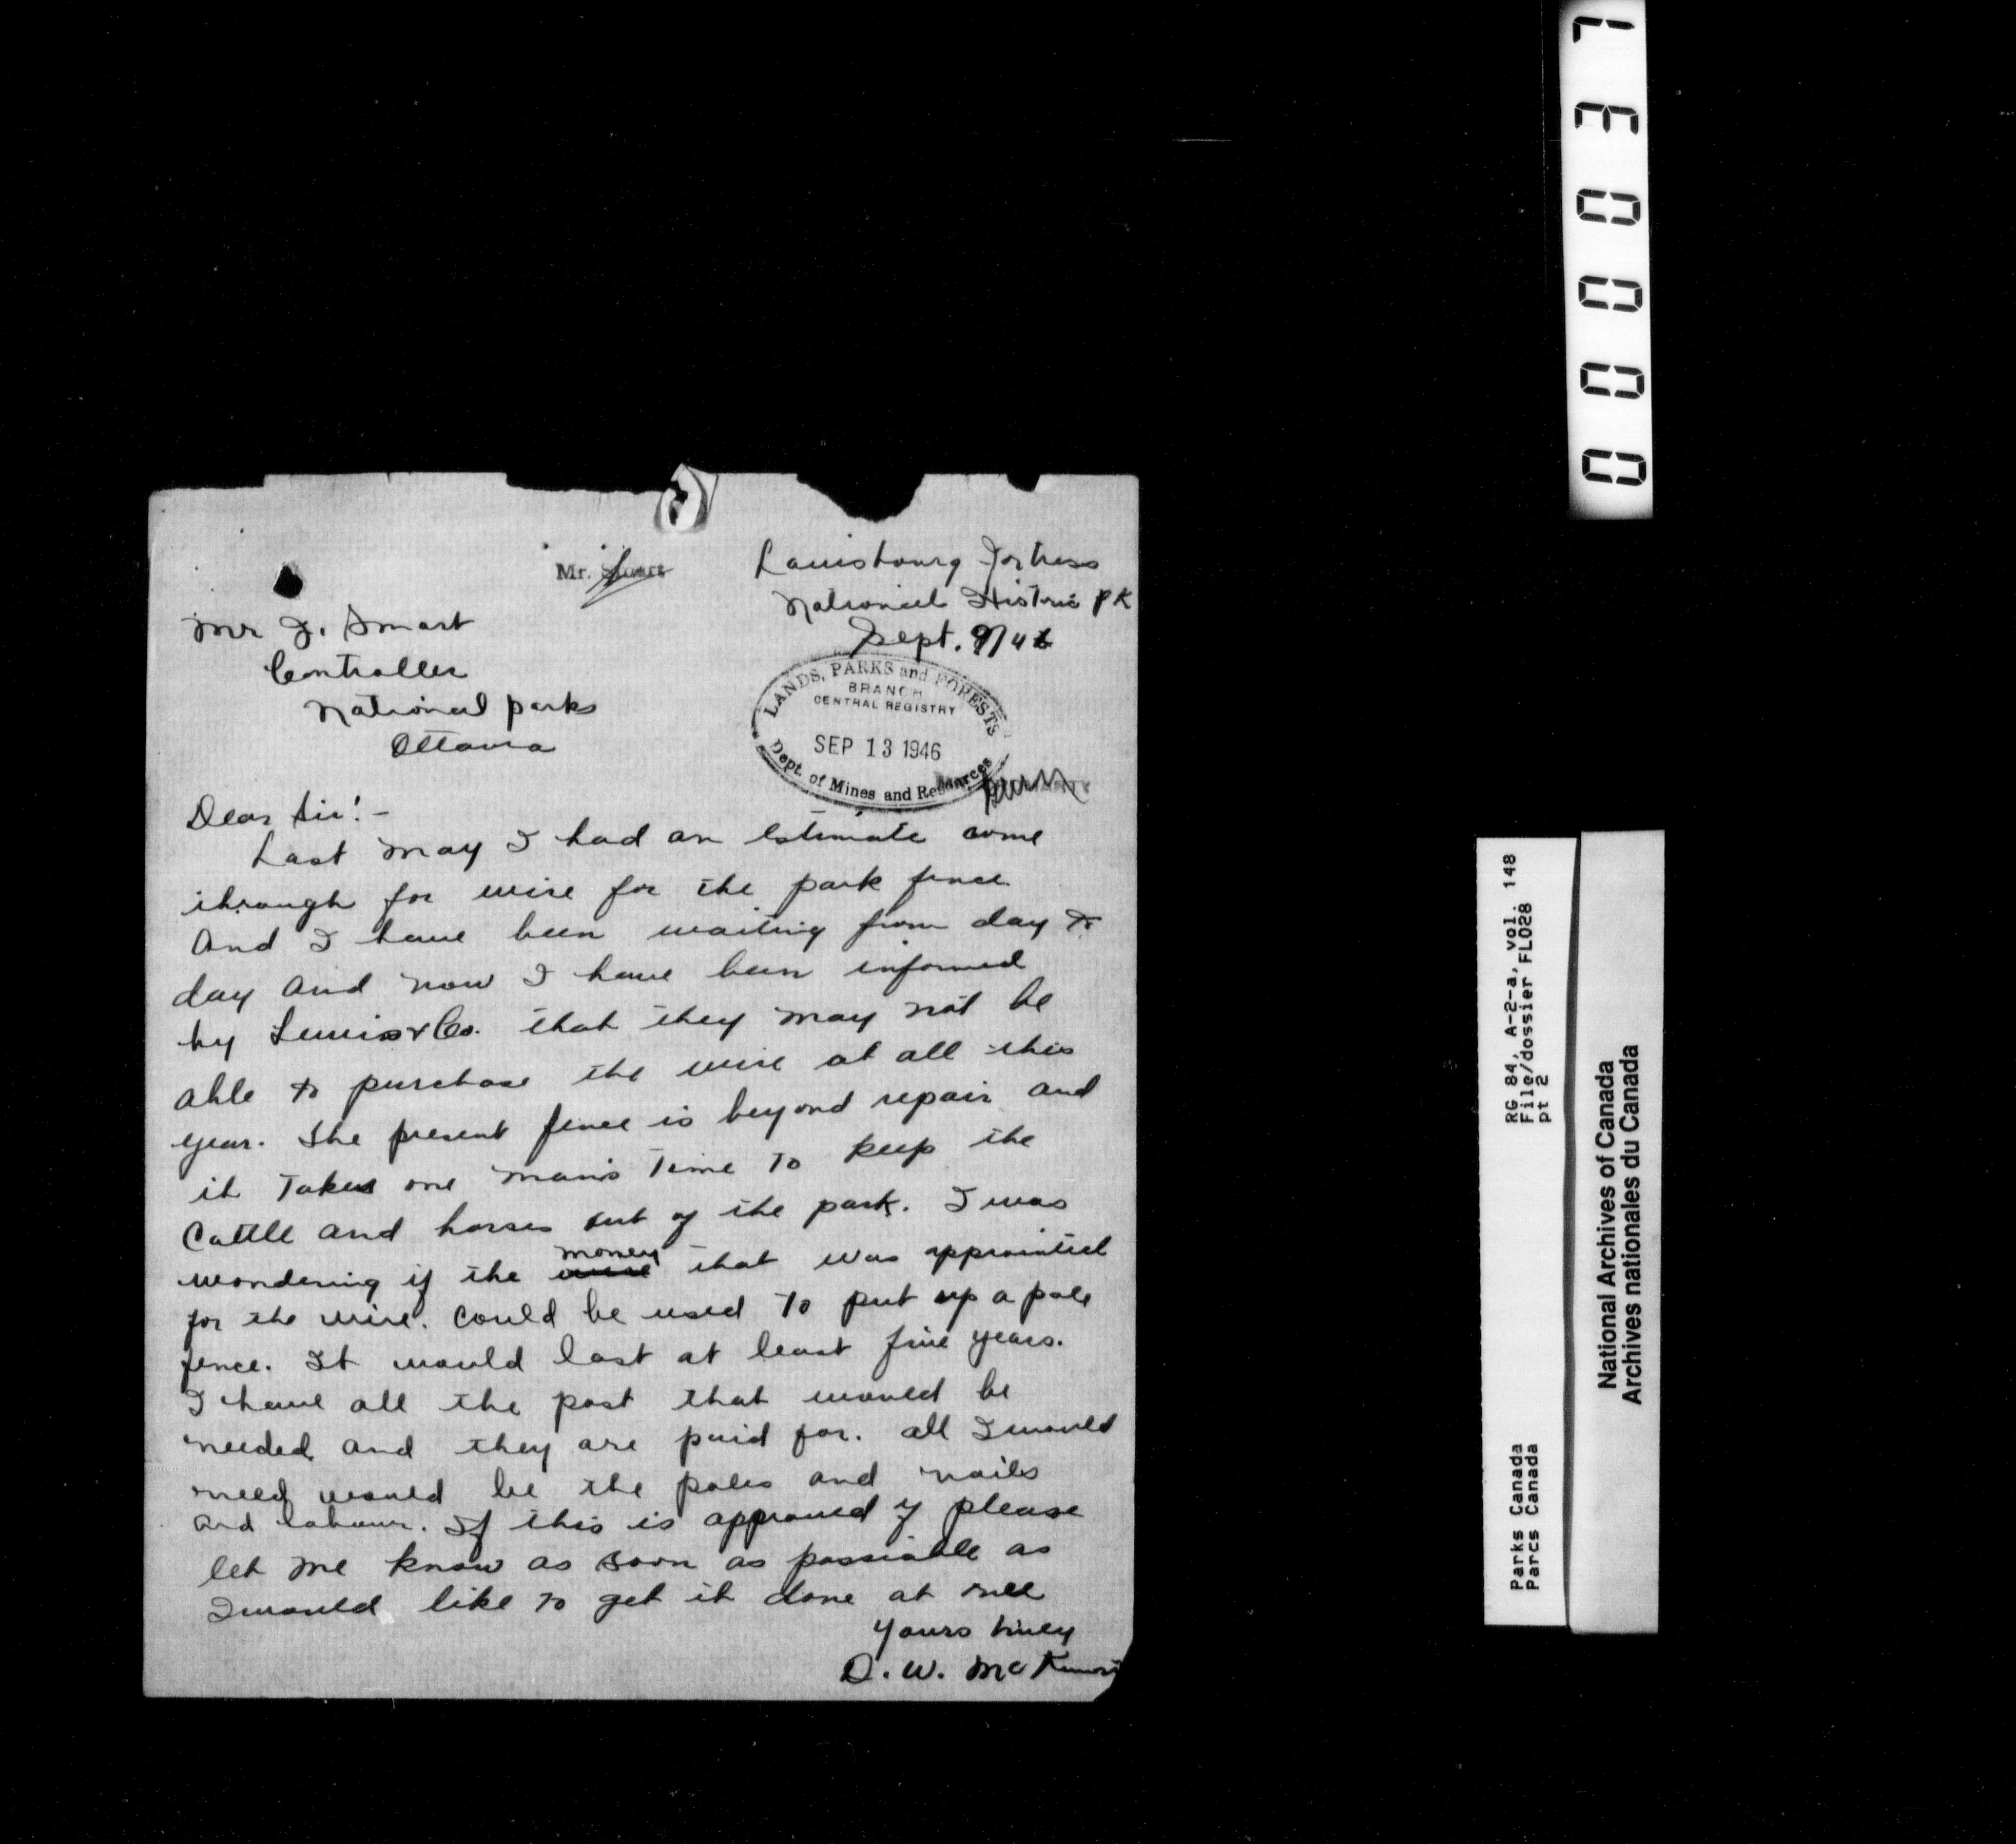 Mr. Smart
Louisbourg Fortress
National Historic Pk
Sept. 9/46
Mr J. Smart
Controller
National parks
Ottawa
LANDS, PARKS and FORESTS
BRANCH
CENTRAL REGISTRY
SEP 13 1946
Dept. of Mines and Resources
Dear Sir:-
Last May I had an estimate come
through for wire for the park fence.
And I have been waiting from day to
day and now I have been informed
by Lewis & Co. that they may not be
able to purchase the wire at all this
year. The present fence is beyond repair and
it takes one man's time to keep the
cattle and horses out of the park. I was
wondering if the wire money that was
for the wire. could be used to put up a pole
fence. It would last at least five years.
I have all the post that would be
needed and they are paid for. all I would
need would be the poles and nails
and labour. If this is approved of please
let me know as soon as possiable as
I would like to get it done at once
Yours truly
D. W. Mc
000037
RG 84, A-2-a, vol. 148
File/dossier FLO28
pt 2
Parks Canada
Parcs Canada
National Archives of Canada
Archives nationales du Canada